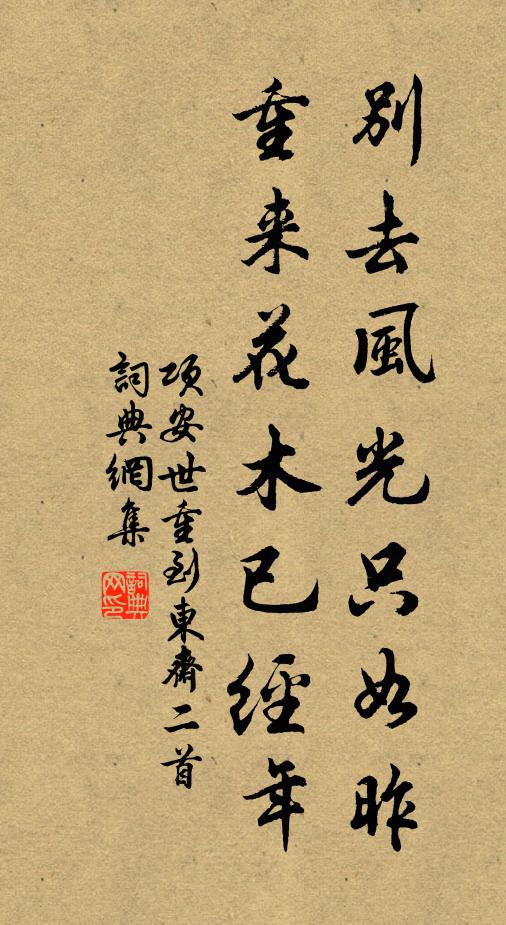 別去風光只如昨
重来花木已經年
項安世重到東齋二首
詞典網集
詞典网印